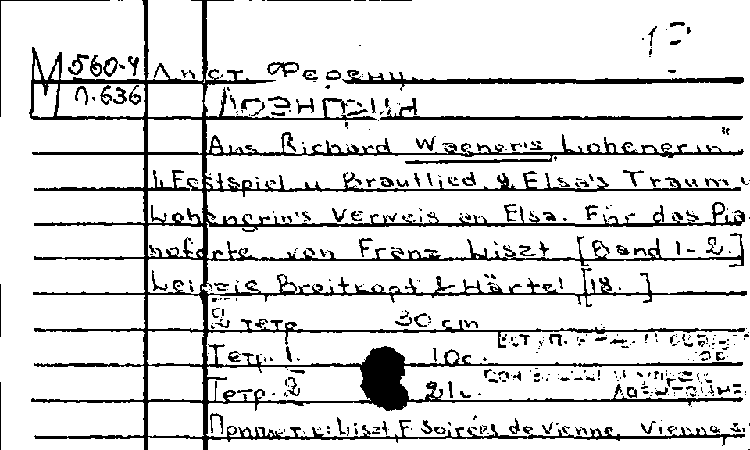 12
М 560-4 Лист, Ференц.
Л.636 ЛОЭНГРИН
Aus Richard Wagner's Lohengrin"
1. Festspiel u. Brautlied. 2. Elsa's Traum u
Lohengrin's Verweis an Elsa. Für das Pia-
noforte von Franz Liszt [Band 1-2.]
Leipzig, Breitkopf & Härtel [18. ]
2 тетр. 30 cm
Тетр. 1. 10с.
Тетр. 2 21с.
Приплет. к: Liszt, F. Soirées de Vienne, Vienne,